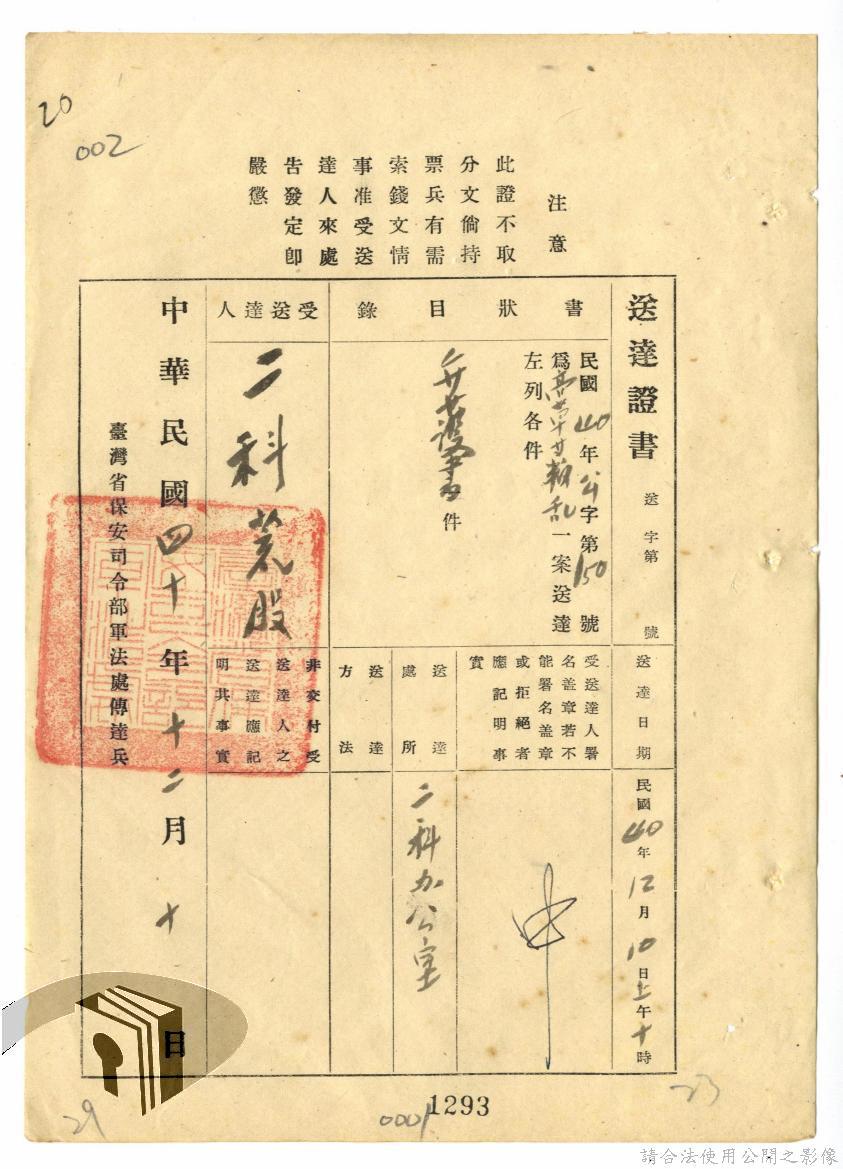 20
002
注意
此證不取
分文倘持
票兵有需
索錢文情
事准受送
達人來處
告發定卽
嚴懲
送達證書
送 字第 號
送達日期
民國40年12月10日上午十時
書狀目錄
民國40年 字第150號
爲 叛乱一案送達
左列各件
書 件
受送達人署
名盖章若不
能署名盖章
或拒絕者
應記明事
實
送達處所
二科办公室
送達方法
受送達人
二科 股
非交付受
送達人之
送達應記
明其事實
中華民國四十年十二月十日
臺灣省保安司令部軍法處傳達兵
29
0001
1293
23
請合法使用公開之影像